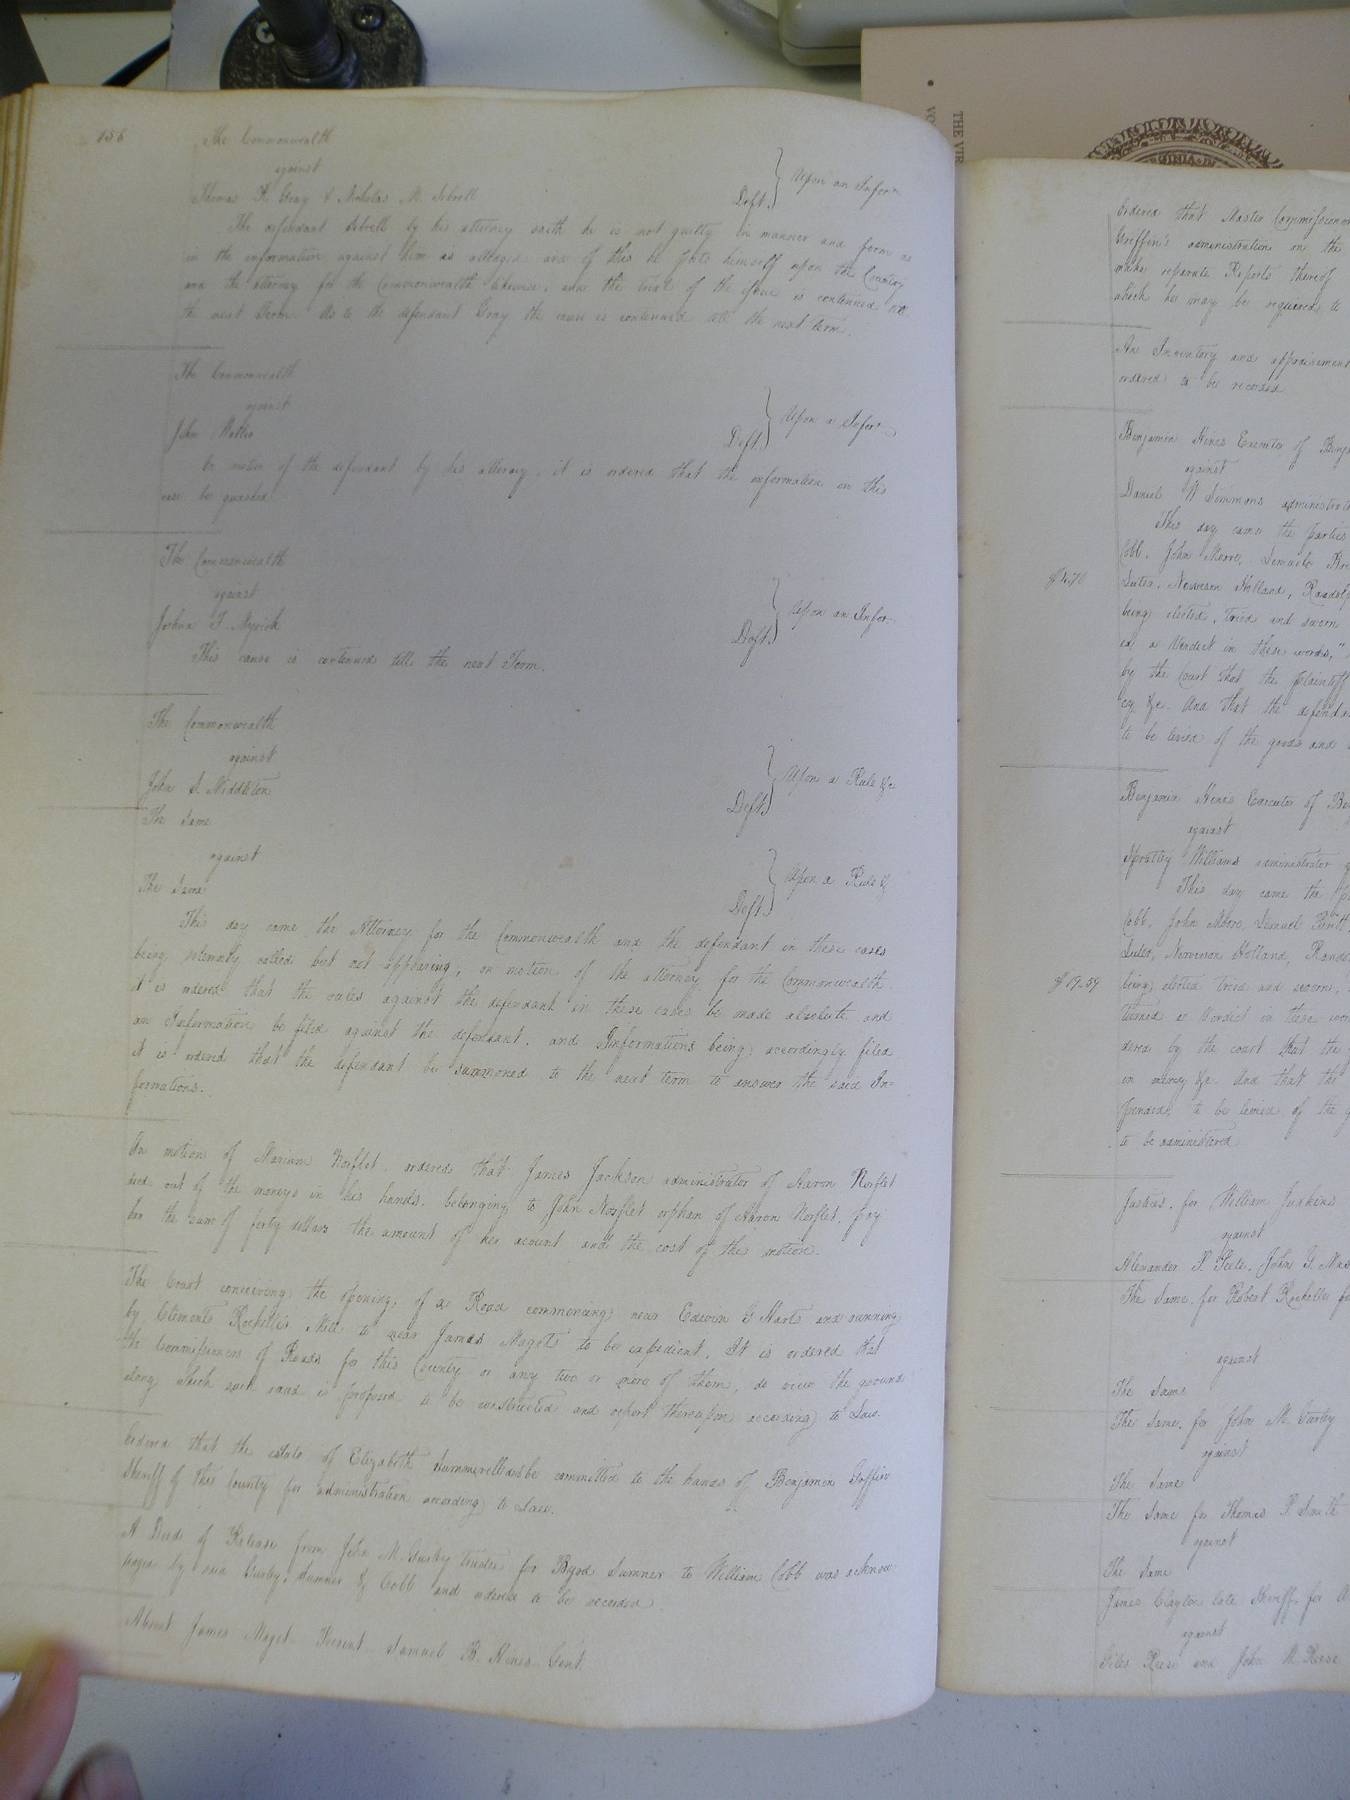 156
The Commonwealth
against
Thomas R. Gray & Nicholas M. Sebrell
Deft.
Upon an Infor
The defendant Sebrell by his attorney saith he is not guilty in manner and form as
in the information against him as alledged and of this he puts himself upon the Country
and the attorney for the Commonwealth likewise, and the trial of the issue is continued till
the next Term. As to the defendant Gray the cause is continued till the next term.
The Commonwealth
against
John
Deft.
Upon a Infor
On motion of the defendant by his attorney, it is ordered that the information in this
case be quashed
The Commonwealth
against
John T. Myrick
Deft.
Upon an Infor
This cause is continued till the next Term.
The Commonwealth
against
John S. Middleton
Deft.
Upon a Rule &c
The Same
against
The Same
Deft.
Upon a Rule &
This day came the Attorney for the Commonwealth and the defendant in these cases
being solemnly called but not appearing, on motion of the attorney for the Commonwealth
it is ordered that the rules against the defendant in these cases be made absolute and
an Information be filed against the defendant, and Informations being accordingly filed
it is ordered that the defendant be summoned to the next term to answer the said In=
formations.
On motion of Mariam Norflet ordered that James Jackson administrator of Aaron Norflet
decd out of the moneys in his hands, belonging to John Norflet orphan of Aaron Norflet, pay
her the sum of forty dollars the amount of her account and the cost of this motion.
The Court conceiving the opening of a Road commencing near Edwin G Harts and running
by Clements Rochelle's Mill to near James Magets to be expedient, It is ordered that
the Commissioners of Roads for this County or any two or more of them, do view the ground
along which such road is proposed to be constructed and report thereupon according to Law.
Ordered that the estate of Elizabeth Summerell be committed to the hands of Benjamin Griffin
Sheriff of this County for administration according to Law.
A Deed of Release from John M. Gurley trustee for Byrd Sumner to William Cobb was acknow
ledged by said Gurley, Sumner & Cobb and ordered to be recorded
Absent James Maget Present Samuel B. Hines Gent.
THE VIR
VO
GINIA IN
Ordered that Master Commissioner
Griffin's administration on the
make separate Reports thereof
which he may be required to
An Inventory and appraisement
ordered to be recorded
Benjamin Hines Executor of Benj
against
Daniel W Simmons administrat
This day came the parties
Cobb, John Moore, Lemuel
Newsom Holland, Randolp
being elected, tried and sworn
a Verdict in these words, "
by the Court that the plaintiff
cy &c. And that the defenda
to be levied of the goods and
Benjamin Hines Executor of Be
against
Spratley Williams administrator
This day came the p
Cobb, John Moore, Lemuel
Newsom Holland, Rando
$ 19.59
being elected tried and sworn,
turned a Verdict in these wor
dered by the court that the
in mercy &c And that the
to be levied of the g
to be administered
Justices, for William Judkins
against
Alexander P. Peete, John G. Mas
The Same, for Robert Rochelle
against
The Same
The Same, for John M. Gurley
against
The Same
The Same for Thomas P. Smith
against
The Same
James Clayton late Sheriff, for
against
Giles Reese and John Reese